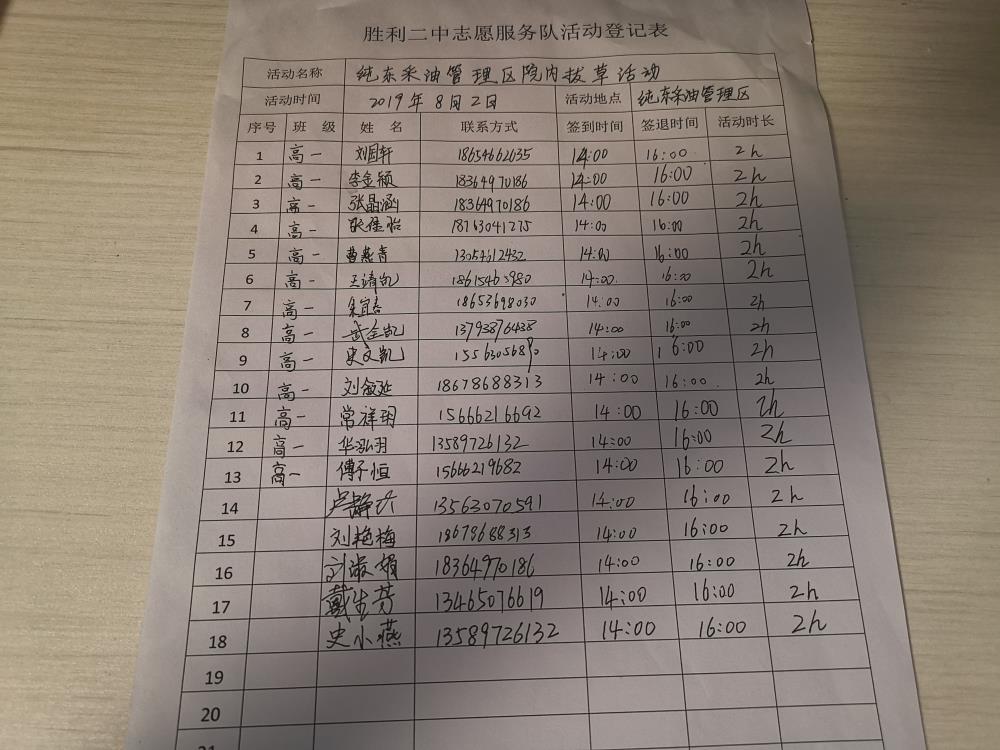 胜利二中志愿服务队活动登记表
活动名称 纯东采油管理区院内拔草活动
活动时间 2019年8月2日 活动地点 纯东采油管理区
序号 班 级 姓 名 联系方式 签到时间 签退时间 活动时长
1 高一 刘国轩 18654662635 14:00 16:00 2h
2 高一 李金颖 18364970186 14:00 16:00 2h
3 高一 张晶涵 18364970186 14:00 16:00 2h
4 高一 张佳怡 18763041275 14:00 16:00 2h
5 高一 曹燕青 13054612432 14:00 16:00 2h
6 高一 王靖凯 18615463980 14:00 16:00 2h
7 高一 18653698030 14:00 16:00 2h
8 高一 武金凯 13793876438 14:00 16:00 2h
9 高一 史文凯 14:00 16:00 2h
10 高一 刘叙延 18678688313 14:00 16:00 2h
11 高一 常祥玥 15666216692 14:00 16:00 2h
12 高一 华泓羽 13589726132 14:00 16:00 2h
13 高一 傅子恒 15666219682 14:00 16:00 2h
14 卢静 13563070591 14:00 16:00 2h
15 刘艳梅 18678688313 14:00 16:00 2h
16 刘淑娟 18364970186 14:00 16:00 2h
17 戴生芳 13465076619 14:00 16:00 2h
18 史小燕 13589726132 14:00 16:00 2h
19
20
21